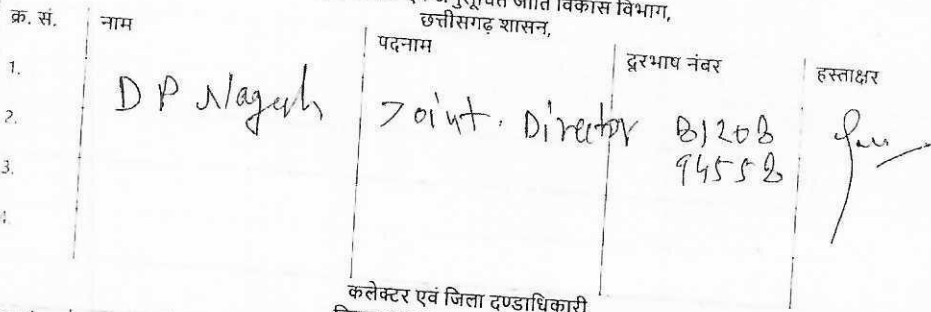 अनुसूचित जाति विकास विभाग,
छत्तीसगढ़ शासन,
क्र. सं. नाम पदनाम दूरभाष नंबर हस्ताक्षर
1.
2. D P Nagesh Joint. Director 81208
94558
3.
4.
कलेक्टर एवं जिला दण्डाधिकारी